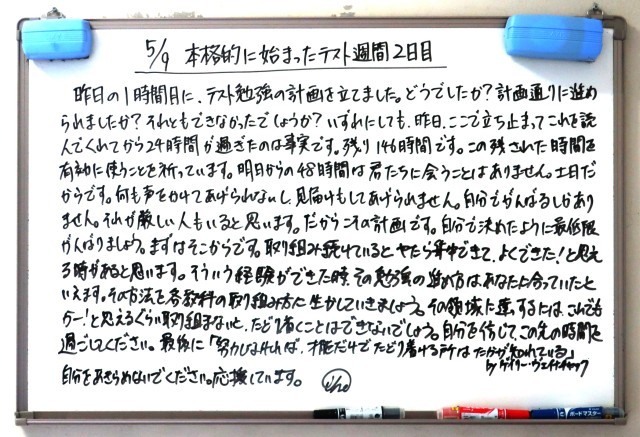 5/9 本格的に始まったテスト週間2日目
昨日の1時間目に、テスト勉強の計画を立てました。どうでしたか?計画通りに進め
られましたか?それともできなかったでしょうか?いずれにしても、昨日、ここで立ち止まってこれを読
んでくれてから24時間が過ぎたのは事実です。残り146時間です。この残された時間を
有効に使うことを祈っています。明日からの48時間は君たちに会うことはありません。土日だ
からです。何も声をかけてあげられないし、見届けもしてあげられません。自分でがんばるしかあり
ません。それが厳しい人もいると思います。だからこその計画です。自分で決めたように最低限
がんばりましょう。まずはそこからです。取り組み続けているとやたら集中できて、よくできた!と思え
る時があると思います。そういう経験ができた時、その勉強の進め方はあなたに合っていたと
いえます。その方法を各教科の取り組み方に生かしていきましょう。その領域に達するには、これでも
かー!と思えるぐらい取り組まないと、たどり着くことはできないでしょう。自分を信じて、この先の時間を
過ごしてください。最後に「努力しなければ、才能だけでたどり着ける所はたかが知れている」
by ゲイリー・ヴェイナチャック
自分をあきらめないでください。応援しています。
ボードマスター